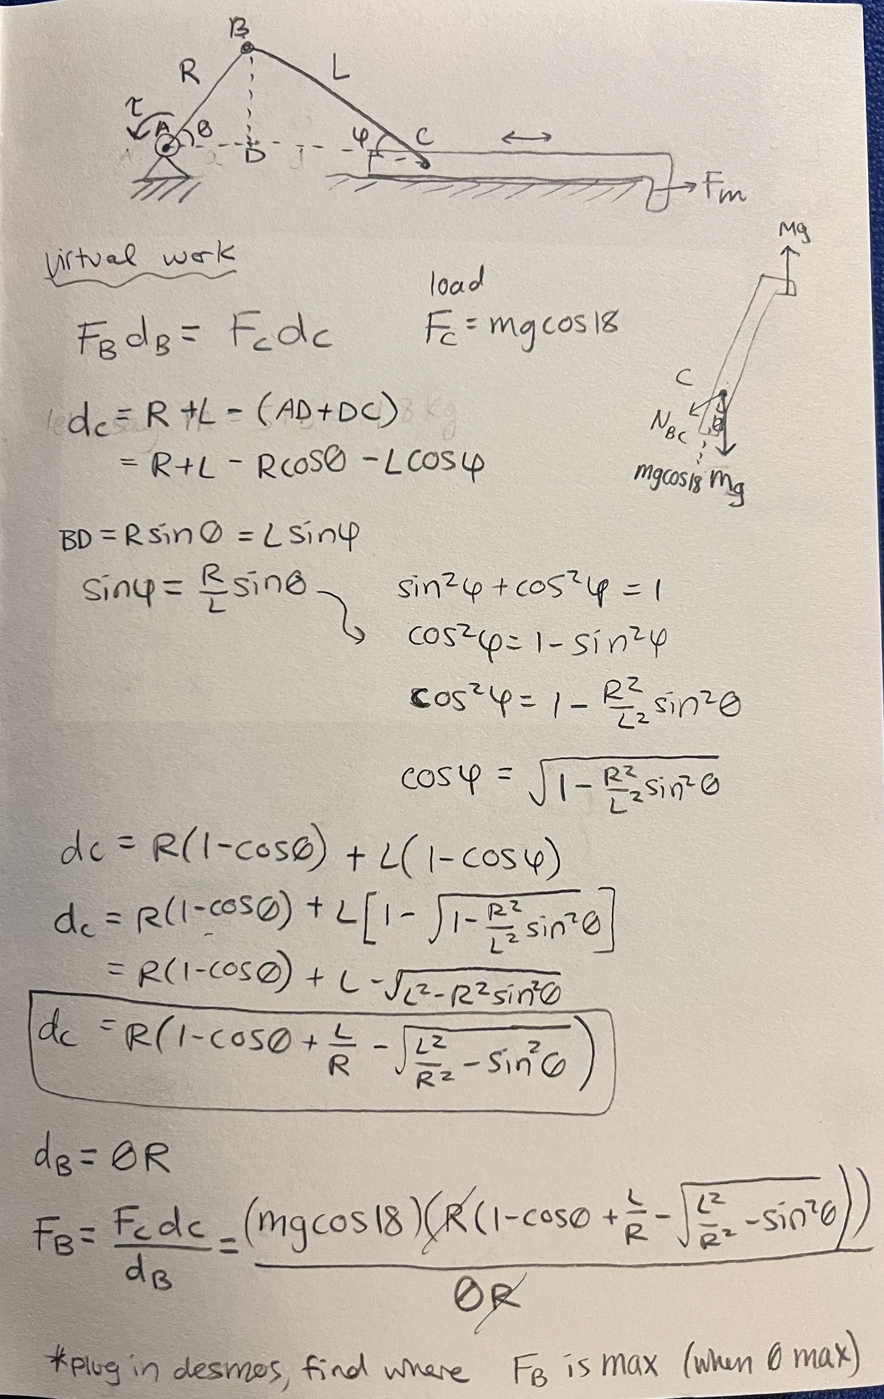 B
R
L
τ
A
θ
D
φ
C
Fm
Mg
virtual work
load
F_B d_B = F_C d_C
F_C = mgcos18
C
N_BC
mgcos18 Mg
d_C = R + L - (AD + DC)
= R + L - Rcosθ - Lcosφ
BD = Rsinθ = Lsinφ
sinφ = R/L sinθ
sin²φ + cos²φ = 1
cos²φ = 1 - sin²φ
cos²φ = 1 - R²/L² sin²θ
cosφ = √(1 - R²/L² sin²θ)
d_C = R(1-cosθ) + L(1-cosφ)
d_C = R(1-cosθ) + L[1 - √(1 - R²/L² sin²θ)]
= R(1-cosθ) + L - √(L² - R²sin²θ)
d_C = R(1-cosθ + L/R - √(L²/R² - sin²θ))
d_B = θR
F_B = F_C d_C / d_B = (mgcos18)(R(1-cosθ + L/R - √(L²/R² - sin²θ))) / θR
*plug in desmos, find where F_B is max (when θ max)